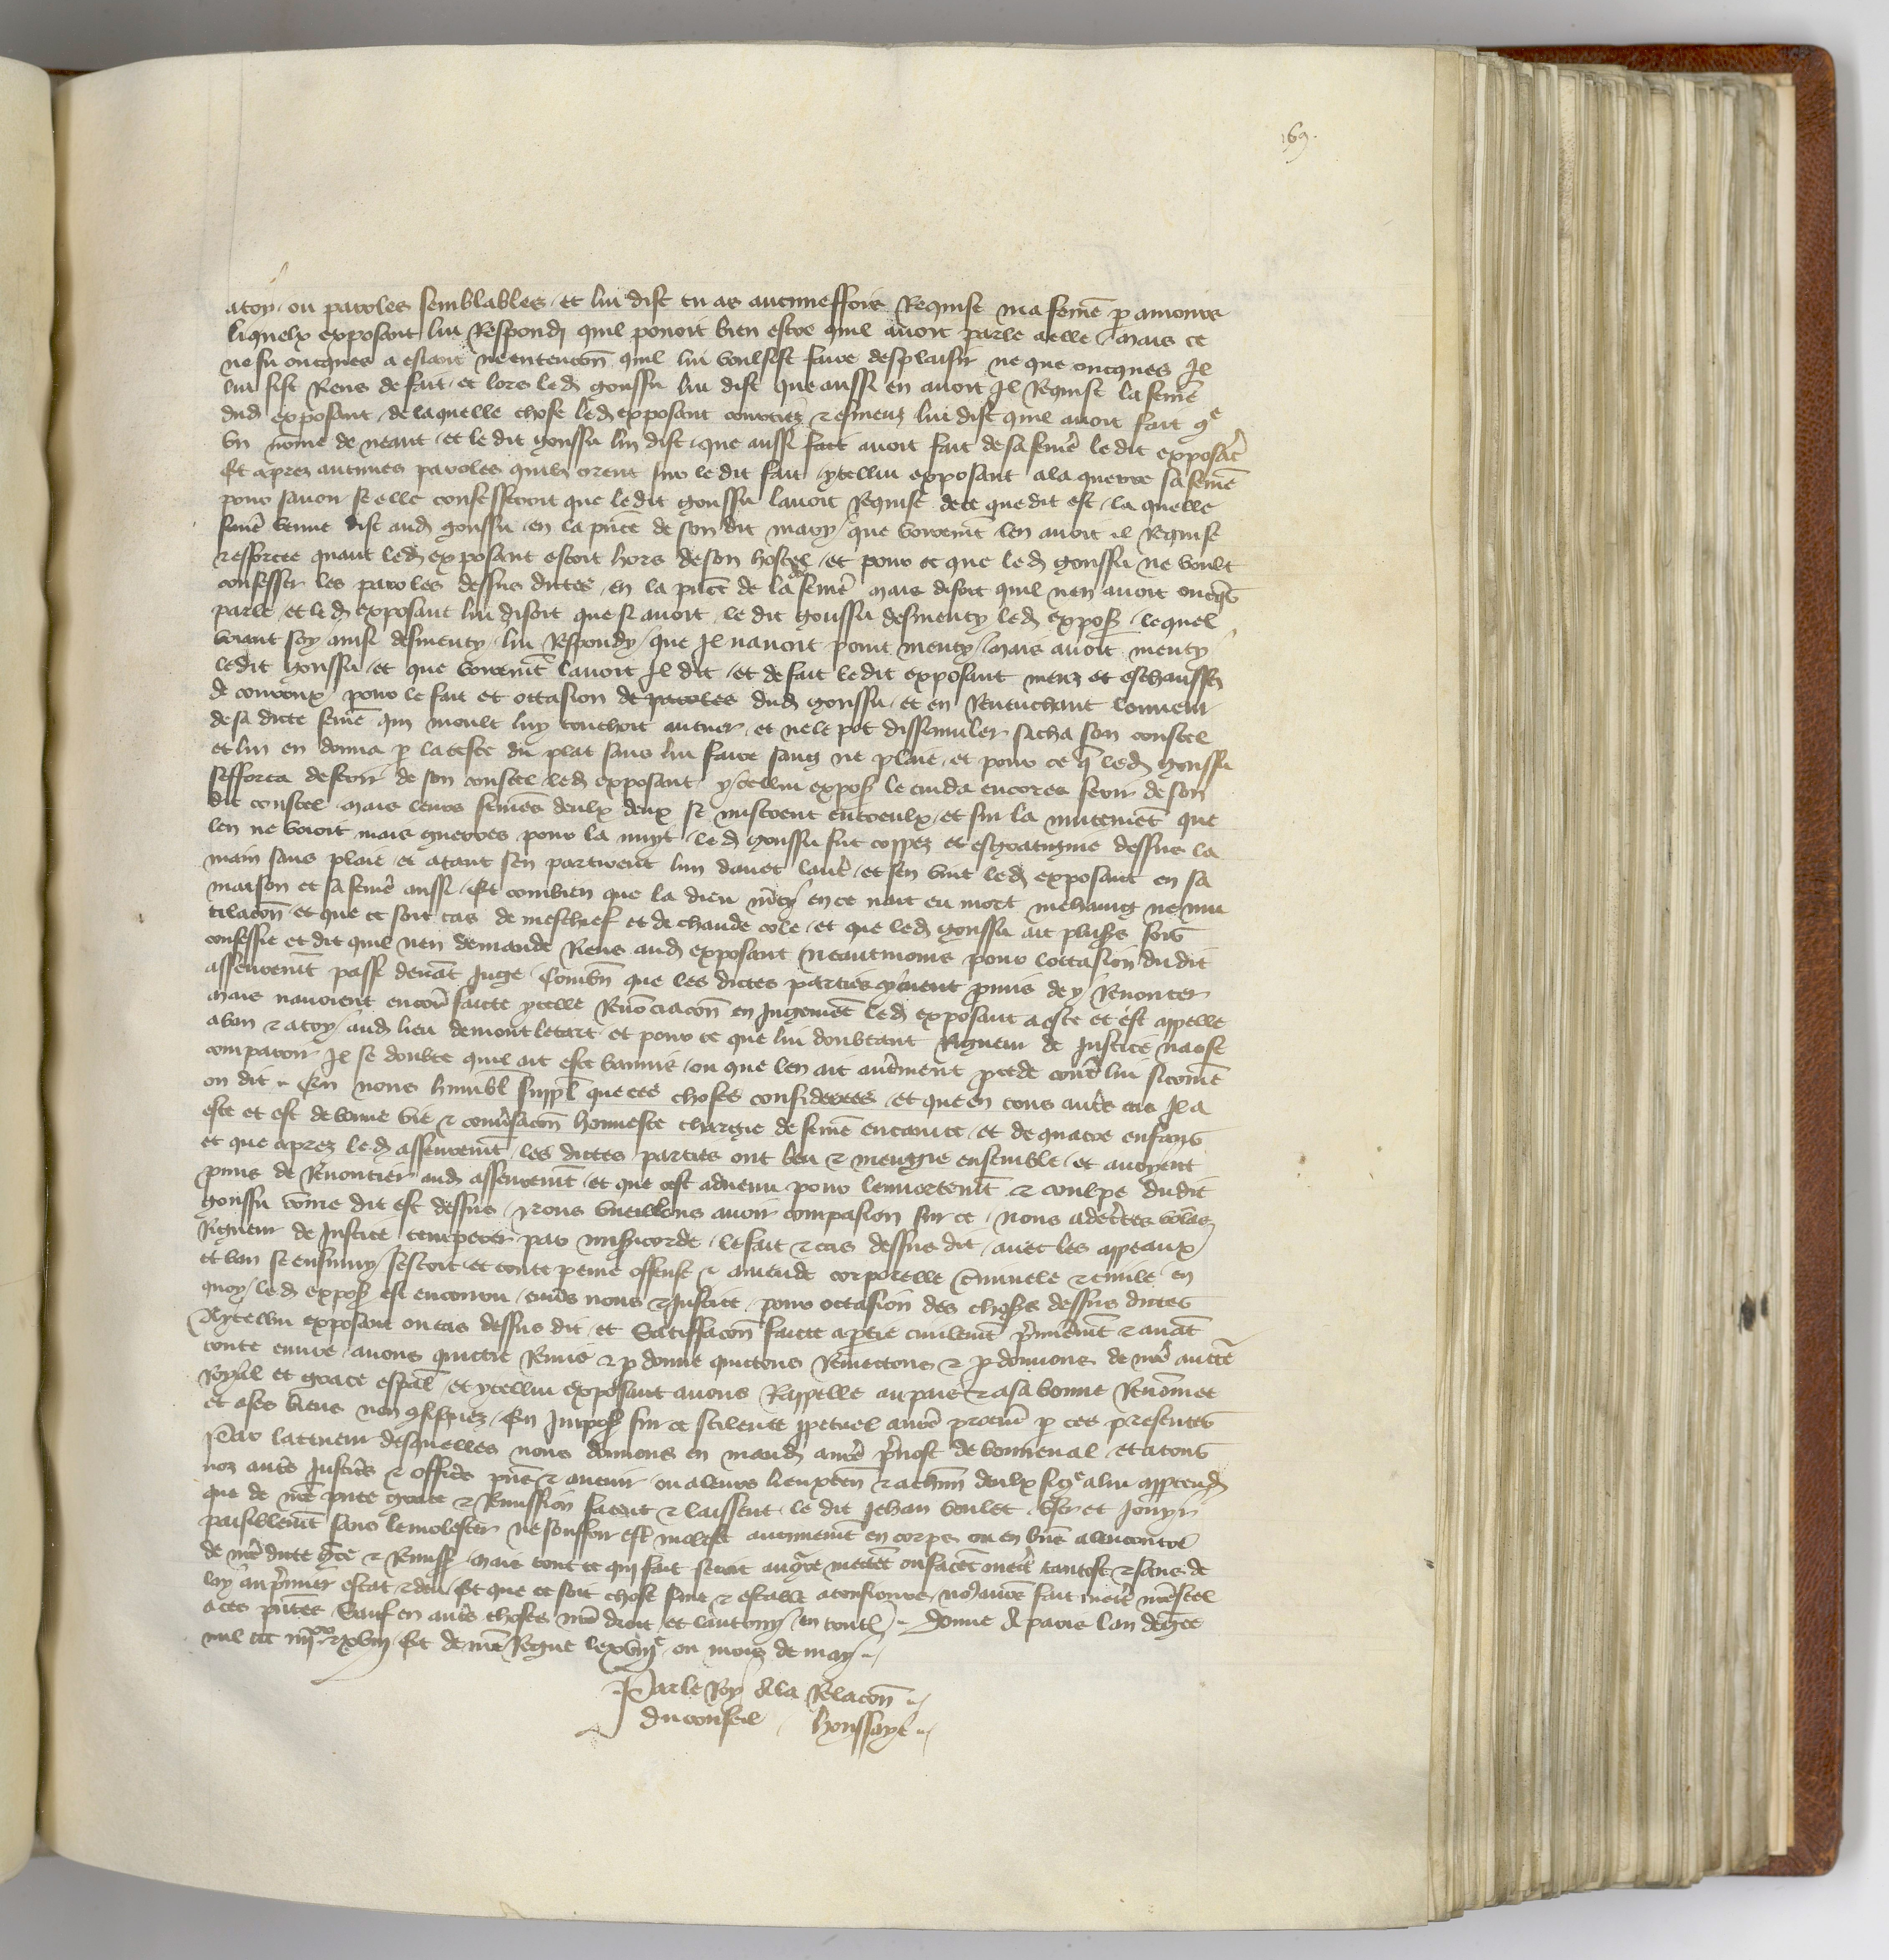 169.
atoy ou paroles semblables et lui dist tu as aucuneffois Requise ma feme p amours
liquelx exposant lui Respondi quil pouoit bien estre quil auoit parle a elle mais ce
ne fu oncques a estant ne entencon quil lui voulsist faire desplaisir ne que oncques Il
lui fist Riens de fait et lors led goussu lui dist que aussi en auoit Il Requise la feme
dud exposant de laquelle chose led exposant courciez & esmeuz lui dist quil auoit fait q̃
vn home de neant et le dit goussu lui dist que aussi fait auoit fait de sa feme le dit exposãt
Et aprez aucunes paroles quilz orent sur le dit fait ycellui exposant ala querre sa feme
pour sauoir se elle confesseroit que le dit goussu lauoit Requise de ce que dit est la quelle
feme venue dist aud goussu en la pñce de son dit mary que vraiemt len auoit il Requise
& efforcee quant led exposant estoit hors de son hostel et pour ce que led goussu ne voult
confesser les paroles dessus dictes en la pñce de la feme mais disoit quil nen auoit oncqs
parle et led exposant lui disoit que si auoit le dit goussu desmenty led expos lequel
voiant soy ainsi desmenty lui Respondy que Il nauoit point menty mais auoit menty
ledit goussu et que vraiemt lauoit Il dit et de fait le dit exposant meuz et eschauffez
de courroux pour le fait et occasion de paroles dud goussu et en Reuenchant lonneur
de sa dicte feme qui moult luy touchoit au cuer et ne le pot dissimuler sacha son coustel
et lui en donna p la teste du plat sans lui faire sang ne plaie et pour ce q led goussu
sefforca de ferir de son coustel led exposant ycellui expos le cuida encores ferir de son
dit coustel mais leurs femes deulx deux se mistrent entreulx et sur la mutemt que
len ne veoit mais guerres pour la nuyt led goussu fut coppez et esgratignie dessus la
main sans plaie et atant sen partirent lun dauec laut̃ et sen vint led exposant en sa
maison et sa feme aussi Et combien que la dieu mcy en ce nait eu mort mehaing ne mu
tilacon et que ce soit cas de meschief et de chaude cole et que led goussu ait plus's fois
confesse et dit quil nen demande Riens aud exposant neantmoins pour loccasion du dit
asseuremt passe deuãt Juge Combn que les dictes parties eussent pmis de y Renoncer
mais nauoient encore faicte ycelle Renõciacon en Jugemẽt led exposant a este et est appelle
a ban & atoy aud lieu de montletart et pour ce que lui doubtant Rigueur de Justice na ose
comparoir Il se doubte quil ait este bannis ou que len ait autrement pcede contre lui sicome
on dit En nous humbl suppl que ces choses considerees et que en tous autres cas Il a
este et est de bonne vie & conusacon honneste chargie de feme enceinte et de quatre enfans
et que aprez led asseuremt les dictes parties ont beu & mengie ensemble et auoyent
pmis de Renoncier aud asseuremt et que cest aduenu pour lenuortemt & coulpe du dit
goussu come dit est dessus Nous vueillons auoir compasion sur ce Nous adecertes volãs
Rigueur de Justice temperer par misicorde le fait & cas dessus dit auec les appeaux
et ban se ensuiuy sestoit et toute peine offense & amende corporelle cminele & ciuile en
quoy led expos est encorru enuers nous & Justice pour occasion des choses dessus dictes
A ycellui exposant ou cas dessus dit et Satiffacon faicte a ptie ciuilemt pmieremt & auãt
toute euure auons quictie Remis & pdonne quictons Remectons & pdonnons de nre auctẽ
Royal et grace espãl et ycellui exposant auons Rappelle au pais & a sa bonne Renõmee
et a ses biens non cõfisquez En Impos sur ce scilence ppetuel a nre procur p ces presentes
Par la teneur desquelles nous donnons en mand a nre puost de bonneual et a tous
noz autres Justic's & offic's pns & auenir ou a leurs lieuxten & a chũn deulx sicẽ a lui apptend
que de nre pnte grace & Remission facent & laissent le dit Jehan Voulet vser et Jouyr
paisiblemt sans le molester ne souffrir est molest aucunemt en corps ou en biẽs alencontre
de nre dicte gce & Remiss mais tout ce qui fait seroit au ctre mettẽt ou facẽt mectre tantost & sans de
lay au pmier estat & deu Et que ce soit chose ferme & estable a tousiours nos auõs fait mectre nre scel
a ces pntes Sauf en autres choses nre droit et lautruy en toutes Donne A paris lan de gce
mil ccc iiijxx & xviij Et de nre Regne le xviije ou mois de may
Par le Roy A la Relacon
du conseil houssaye